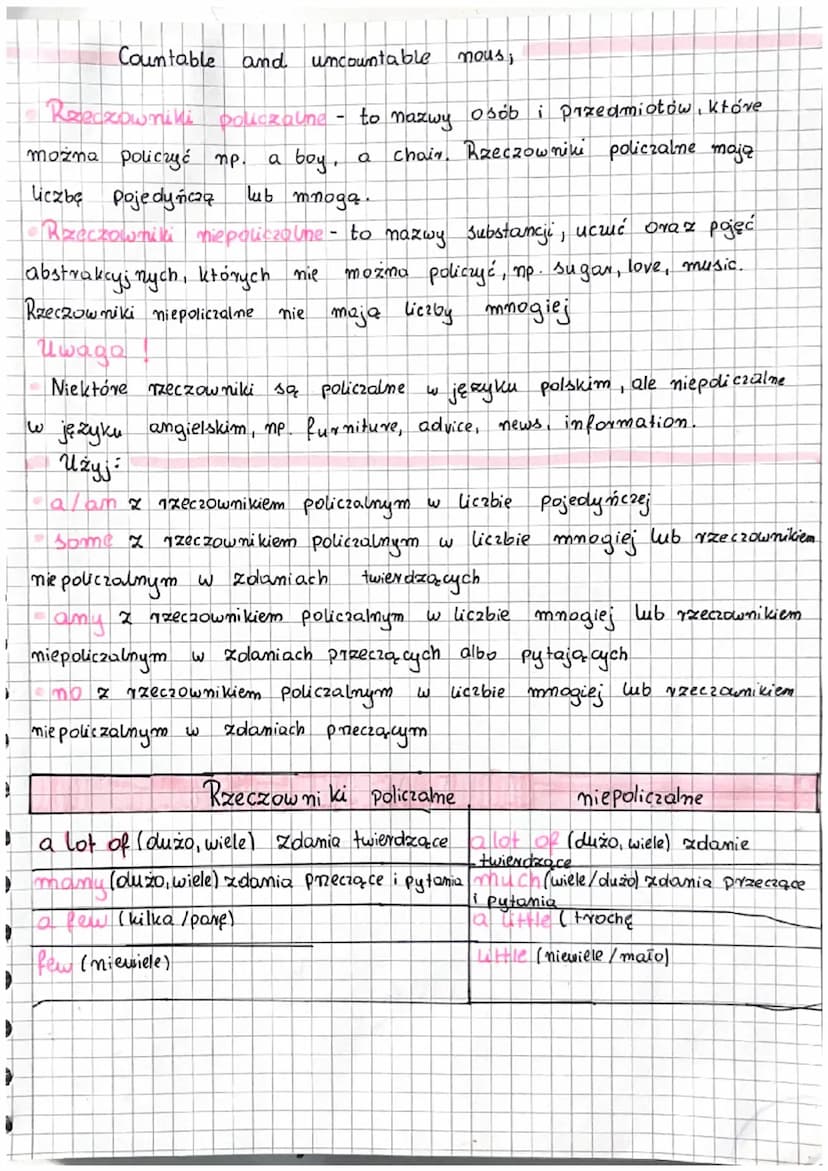 Countable and uncountable nous;
Rzeczowniki policzalne - to nazwy osób i przedmiotów, które
można policzyć np. a boy, a chair. Rzeczowniki policzalne mają
liczbę pojedyńczą lub mnogą.
Rzeczowniki niepoliczalne - to nazwy substancji, uczuć oraz pojęć
abstrakcyjnych, których nie można policzyć, np. sugar, love, music.
Rzeczowniki niepoliczalne nie mają liczby mnogiej
Uwaga!
Niektóre rzeczowniki są policzalne w języku polskim, ale niepoliczalne
w języku angielskim, np. furniture, advice, news, information.
Użyj:
a/an z rzeczownikiem policzalnym w liczbie pojedyńczej
some z rzeczownikiem policzalnym w liczbie mnogiej lub rzeczownikiem
niepoliczalnym w zdaniach twierdzących
any z rzeczownikiem policzalnym w liczbie mnogiej lub rzeczownikiem
niepoliczalnym w zdaniach przeczących albo pytających
no z rzeczownikiem policzalnym w liczbie mnogiej lub rzeczownikiem
niepoliczalnym w zdaniach przeczącym
Rzeczowniki policzalne niepoliczalne
a lot of (dużo, wiele) zdania twierdzące a lot of (dużo, wiele) zdanie
twierdzące
many (dużo, wiele) zdania przeczące i pytania much (wiele/dużo) zdania przeczące
i pytania
a few (kilka/parę) a little (trochę
few (niewiele) little (niewiele/mało)